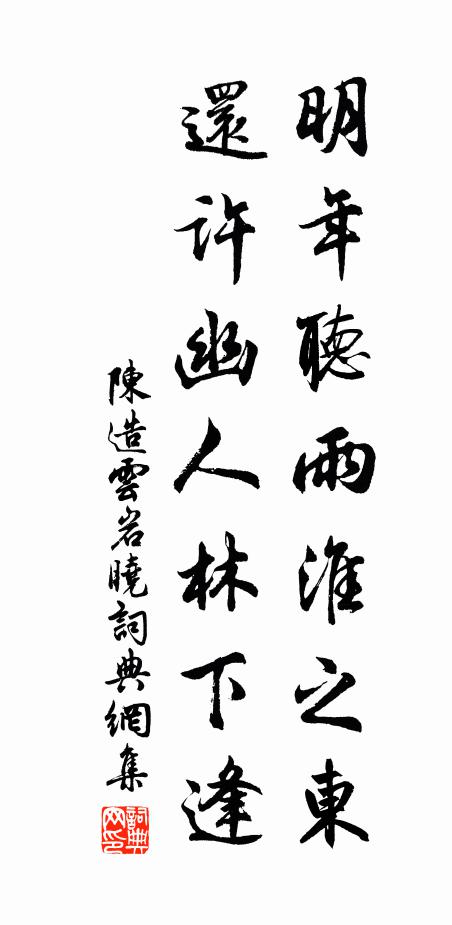 明年聽雨淮之東
還許幽人林下逢
陳造雲岩曉詞典網集
詞典
网印